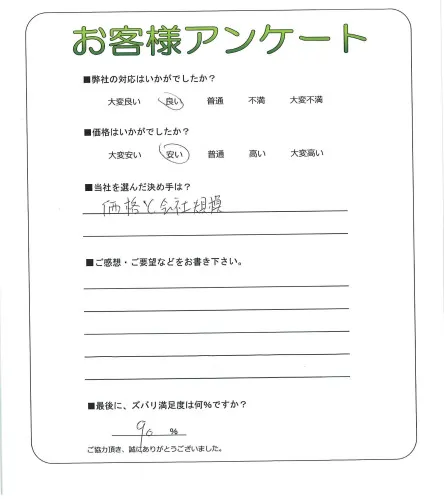 お客様アンケート
■弊社の対応はいかがでしたか？
大変良い 良い 普通 不満 大変不満
■価格はいかがでしたか？
大変安い 安い 普通 高い 大変高い
■当社を選んだ決め手は？
価格と会社規模
■ご感想・ご要望などをお書き下さい。
■最後に、ズバリ満足度は何%ですか？
90 %
ご協力頂き、誠にありがとうございました。